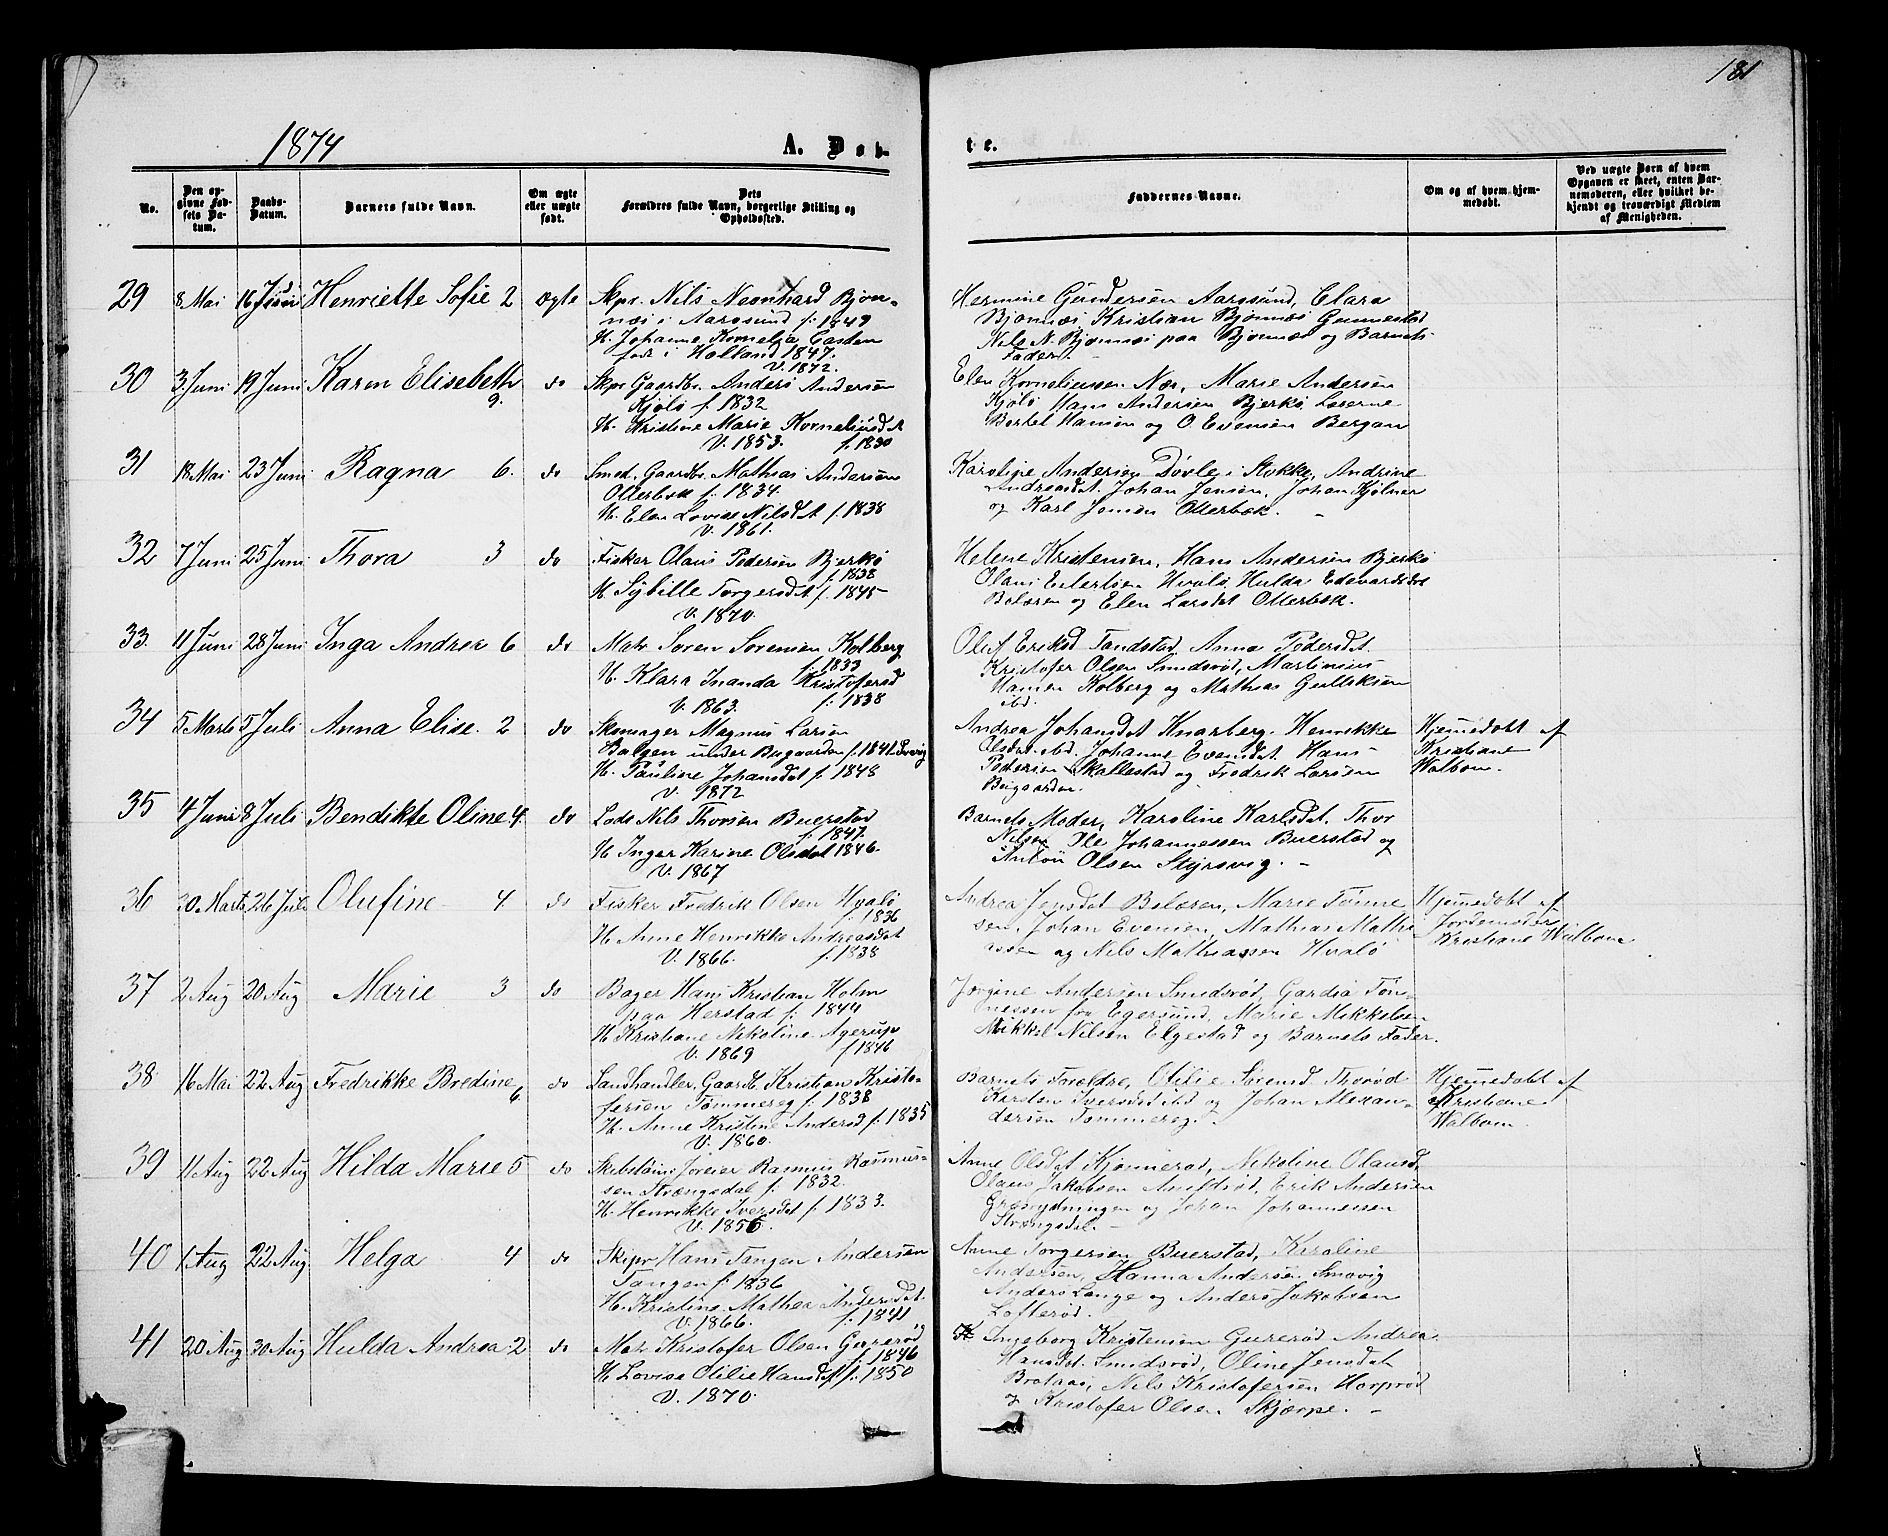 181
1874 A. Døb-
te.
No.
Den opgivne Fødsels Datum.
Daabs-Datum.
Barnets fulde Navn.
Om ægte eller uægte født.
Dets Forældres fulde Navn, borgerlige Stilling og Opholdssted.
Faddernes Navne.
Om og af hvem hjemmedøbt.
Ved uægte Børn af hvem Opgaven er skeet, enten Barnemoderen, eller hvilket bekjendt og troværdigt Medlem af Menigheden.
29 8 Mai 16 Juni Henriette Sofie 2 ægte Skpr. Nils Neonhard Bjon-
næs i Aarosund f: 1849
H. Johanne Kornelga Casten
født i Holland 1847.
V. 1872.
Hermine Gundersen Aarosund, Clara
Bjonnæs Kristian Bjonnæs Gunnestad
Nils N. Bjonnæs paa Bjonnæs og Barnets
Fader. –
30 3 Juni 19 Juni Karen Elisebeth 9. do Skpr Gaardbr. Anders Andersen
Kjølø f. 1832
H. Kristine Marie Kornelius­dt
V. 1853. f. 1830
Elen Korneliussen Nær, Marie Andersen
Kjølø Hans Andersen Bjerkø Laserne
Bertel Hansen og O. Evensen Bergan
31 18 Mai 23 Juni Ragna 6. do Smed. Gaardbr. Mathias Andersen
Otterbæk f. 1834.
H. Elen Lovise Nilsdt f. 1838
V. 1861.
Karoline Andersen Døvle i Stokke, Andrine
Andreasdt. Johan Jensen, Johan Kjølner
og Karl Jensen Otterbæk. –
32 7 Juni 25 Juni Thora 3 do Fisker Olaus Pedersen Bjerkø
f. 1838
H. Sybille Torgersdt f. 1845
V. 1870.
Helene Kristensen, Hans Andersen Bjerkø
Olaus Hvalø, Hulda Edevardsdt
Bolæren og Elen Larsdt Otterbæk.
33. 11 Juni 28 Juni Inga Andrea 6 do Matr Soren Sorensen Kolberg
f. 1833
H. Klara Inanda Kristofersd
V. 1863. f. 1838
Oluf Eriksd Tandstad, Anna Pedersdt.
Kristofer Olsen Smidsrød, Martinius
Hansen Kolberg og Mathias Gulliksen
ibd.
34 5 Marts 5 Juli Anna Elise. 2 do Skomager Magnus Larsen
Balgen under Bugaarden f. 1841
H. Pauline Johansdt f. 1848
V. 1872
Andrea Johansdt Knarberg. Henrikke
Olsdt ibd. Johanne Evensdt. Hans
Pedersen Skallestad og Fredrik Larsen
Bugaarden.
Hjemedøbt af
Kristiane
Walbom.
35 4 Juni 8 Juli Bendikte Oline. 4. do Lods Nils Thorsen Buerstad
f. 1847.
H Inger Karine Olsdt 1846.
V. 1867
Barnets Moder, Karoline Karlsdt. Thor
Nilsen Ole Johannessen Buerstad og
Anton Olsen Styrsvig. –
36 30 Marts 26 Juli Olufine 4 do Fisker Fredrik Olsen Hvalø
f. 1836
H. Anne Henrikke Andreasdt
V. 1866. f. 1838
Andrea Jensdt Bolæren, Marie Tonne
sen, Johan Evensen, Mathias Mathi
assen og Nils Mathiassen Hvalø
Hjemedøbt af
Jordemoder
Kristiane Walbom
37 2 Aug 20 Aug Marie 3 do Bager Hans Kristian Holm
paa Herstad f. 1844
H. Kristiane Nikoline Agerup
V. 1869 f 1846
Jorgine Andersen Smidsrød, Gardia Ton-
nessen fra Egersund, Marie Mikkelsen
Mikkel Nilsen Elgestad og Barnets Fader.
38 16 Mai 22 Aug Fredrikke Bredine 6 do Landhandler, Gaardb. Kristian Kristo-
fersen Tømmereg f. 1838
H. Anne Kristine Andersd f. 1835
V. 1860.
Barnets Forældre, Otilie Thorød
Kirsten Iversdt ibd og Johan Alexan-
dersen Tommereg. –
Hjemedøbt af
Kristiane
Walbom.
39 11 Aug 22 Aug Hilda Marie 5 do Skibstømr Joreier Rasmus Rasmus-
sen Strængsdal f. 1832.
H. Henrikke Iversdt f. 1833.
V. 1856.
Anne Olsdt Kjønnerød, Nikoline Olausd,
Olaus Jakobsen Erik Andersen
og Johan Johannessen
Strængsdal. –
40 1 Aug 22 Aug Helga 4 do Skipr. Hans Tangen Andersen
Tangen f. 1836
H. Kristine Mathea Andersdt.
V. 1866. f. 1841
Anne Torgersen Buerstad, Karoline
Andersen, Hanna Andersen Smovig
Anders Lange og Anders Jakobsen
Lofterød.
41 20 Aug 30 Aug Hulda Andrea 2 do Matr Kristofer Olsen Gurerød
f. 1846
H. Lovise Otilie Hansdt f. 1850
V. 1870
Ingeborg Kristensen Gurerød Andrea
Hansdt. Smidsrød, Oline Jensdt
Brotaas, Nils Kristofersen Horprød
og Kristofer Olsen Skjærpe. –